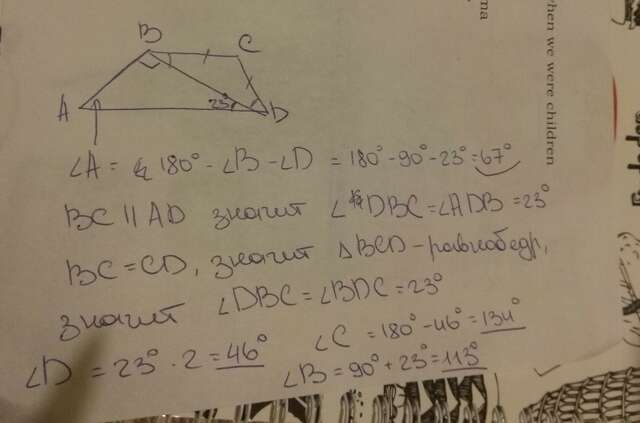 B
C
A
23°
D
∠A = 180° - ∠B - ∠D = 180° - 90° - 23° = 67°
BC || AD значит ∠DBC = ∠ADB = 23°
BC = CD, значит △BCD - равнобедр,
значит ∠DBC = ∠BDC = 23°
∠D = 23° · 2 = 46°
∠C = 180° - 46° = 134°
∠B = 90° + 23° = 113°
when we were children